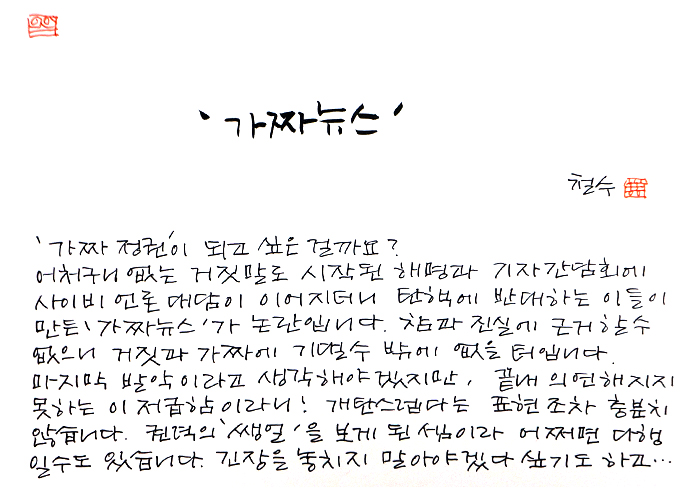 '가짜뉴스'
철수
'가짜 정권'이 되고 싶은 걸까요?
어처구니 없는 거짓말로 시작된 해명과 기자간담회에
사이비 언론 대담이 이어지더니 탄핵에 반대하는 이들이
만든 '가짜뉴스'가 논란입니다. 참과 진실에 근거할 수
없으니 거짓과 가짜에 기댈 수 밖에 없을 터입니다.
마지막 발악이라고 생각해야겠지만, 끝내 의연해지지
못하는 이 저급함이라니! 개탄스럽다는 표현조차 충분치
않습니다. 권력의 '쌩얼'을 보게 된 셈이라 어쩌면 다행
일수도 있습니다. 긴장을 놓치지 말아야겠다 싶기도 하고…